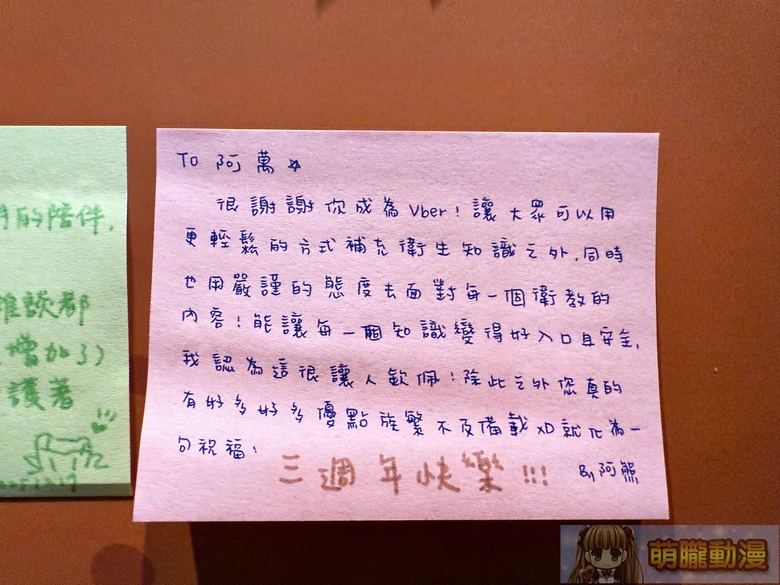 TO 阿萬☆
很謝謝你成為Vber!讓大眾可以用
更輕鬆的方式補充衛生知識之外,同時
也用嚴謹的態度去面對每一個衛教的
內容!能讓每一個知識變得好入口且安全,
我認為這很讓人欽佩!除此之外您真的
有好多好多優點族繁不及備載xD就化為一
句祝福:
三週年快樂!!!
By阿熊
的陪伴,
雜談都
增加了)
護著
萌朧動漫